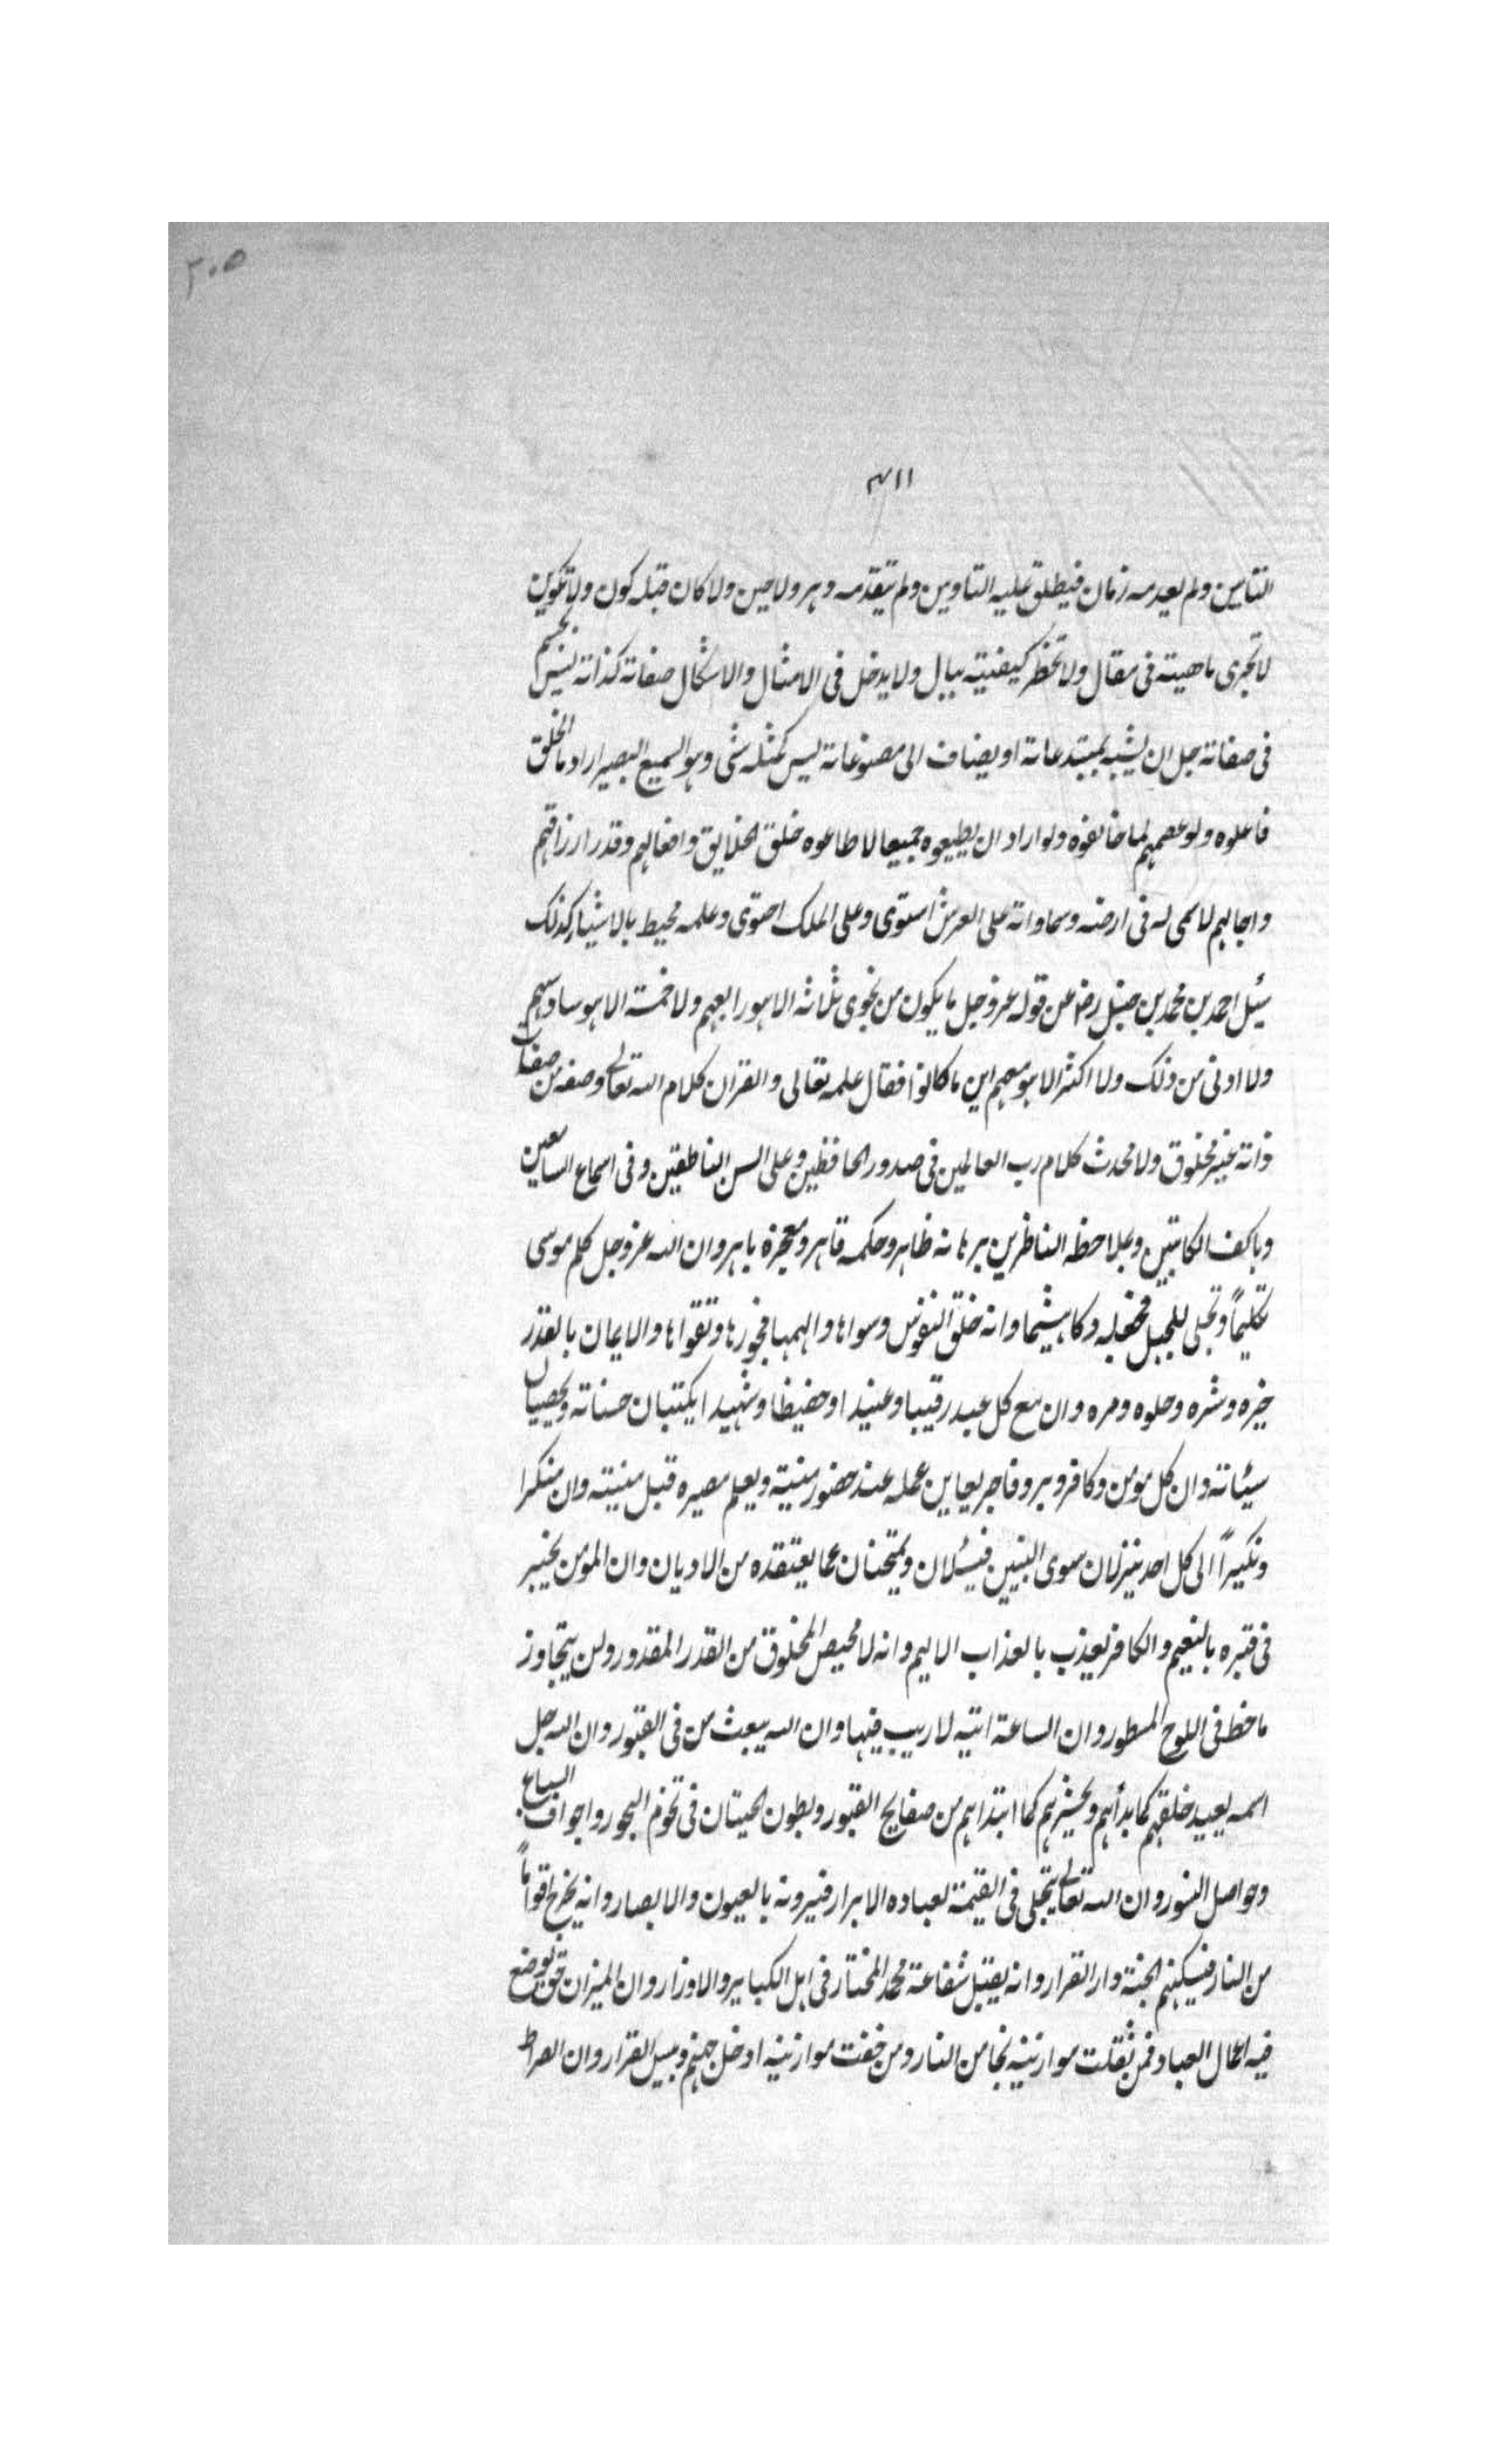 ٢٠٥
٣١١
التامين ولم يعدمه زمان فيطلق عليه التاوين ولم يتقدمه دهر ولا حين ولا كان قبله كون ولا تكوين
لا تجرى ماهيته فى مقال ولا تخطر كيفيته ببال ولا يدخل فى الامثال والاشكال صفاته كذاته ليس بجسم
فى صفاته جل ان يشبه بمبتدعاته او يضاف الى مصنوعاته ليس كمثله شى وهو السميع البصير اراد ما الخلق
فاعلوه ولو عصمهم لما خالفوه ولو اراد ان يطيعوه جميعا لاطاعوه خلق الخلايق وافعالهم وقدر ارزاقهم
واجالهم لا سمى له فى ارضه وسماواته على العرش استوى وعلى الملك احتوى وعلمه محيط بالاشياء كذلك
سئل احمد بن محمد بن حنبل رضا عن قوله عز وجل ما يكون من نجوى ثلاثة الا هو رابعهم ولا خمسة الا هو سادسهم
ولا ادنى من ذلك ولا اكثر الا هو معهم اين ما كانوا فقال علمه تعالى والقران كلام الله تعالى وصفه من صفات
ذاته غير مخلوق ولا محدث كلام رب العالمين فى صدور الحافظين وعلى السن الناطقين وفى اسماع السامعين
وباكف الكاتبين وبملاحظه الناظرين برهانه ظاهر وحكمه قاهر ومعجزه باهر وان الله عز وجل كلم موسى
تكليماً وتجلى للجبل فجعله دكا هشيما وانه خلق النفوس وسواها والهمها فجورها وتقواها والايمان بالقدر
خيره وشره وحلوه ومره وان مع كل عبد رقيبا وعتيدا وحفيظا وشهيدا يكتبان حسناته ويحصيان
سيئاته وان كل مومن وكافر وبر وفاجر يعاين عمله عند حضور منيته ويعلم مصيره قبل منيته وان منكرا
ونكيراً الى كل احد ينزلان سوى النبيين فيسئلان ويمتحنان عما يعتقده من الاديان وان المومن يخبر
فى قبره بالنعيم والكافر يعذب بالعذاب الاليم وانه لا محيص لمخلوق من القدر المقدور ولن يتجاوز
ما خط فى اللوح المسطور وان الساعة اتيه لا ريب فيها وان الله يبعث من فى القبور وان الله جل
اسمه يعيد خلقهم كما بدأهم ويحشرهم كما ابتداهم من صفايح القبور وبطون الحيتان فى تخوم البحور واجواف السباع
وحواصل النسور وان الله تعالى يتجلى فى القيمة لعباده الابرار فيرونه بالعيون والابصار وانه يخرج اقواماً
من النار فيسكنهم الجنة دار القرار وانه يقبل شفاعة محمد المختار فى اهل الكباير والاوزار وان الميزان حق يوضع
فيه اعمال العباد فمن ثقلت موازينه نجا من النار ومن خفت موازينه ادخل جهنم وبيس القرار وان الصراط